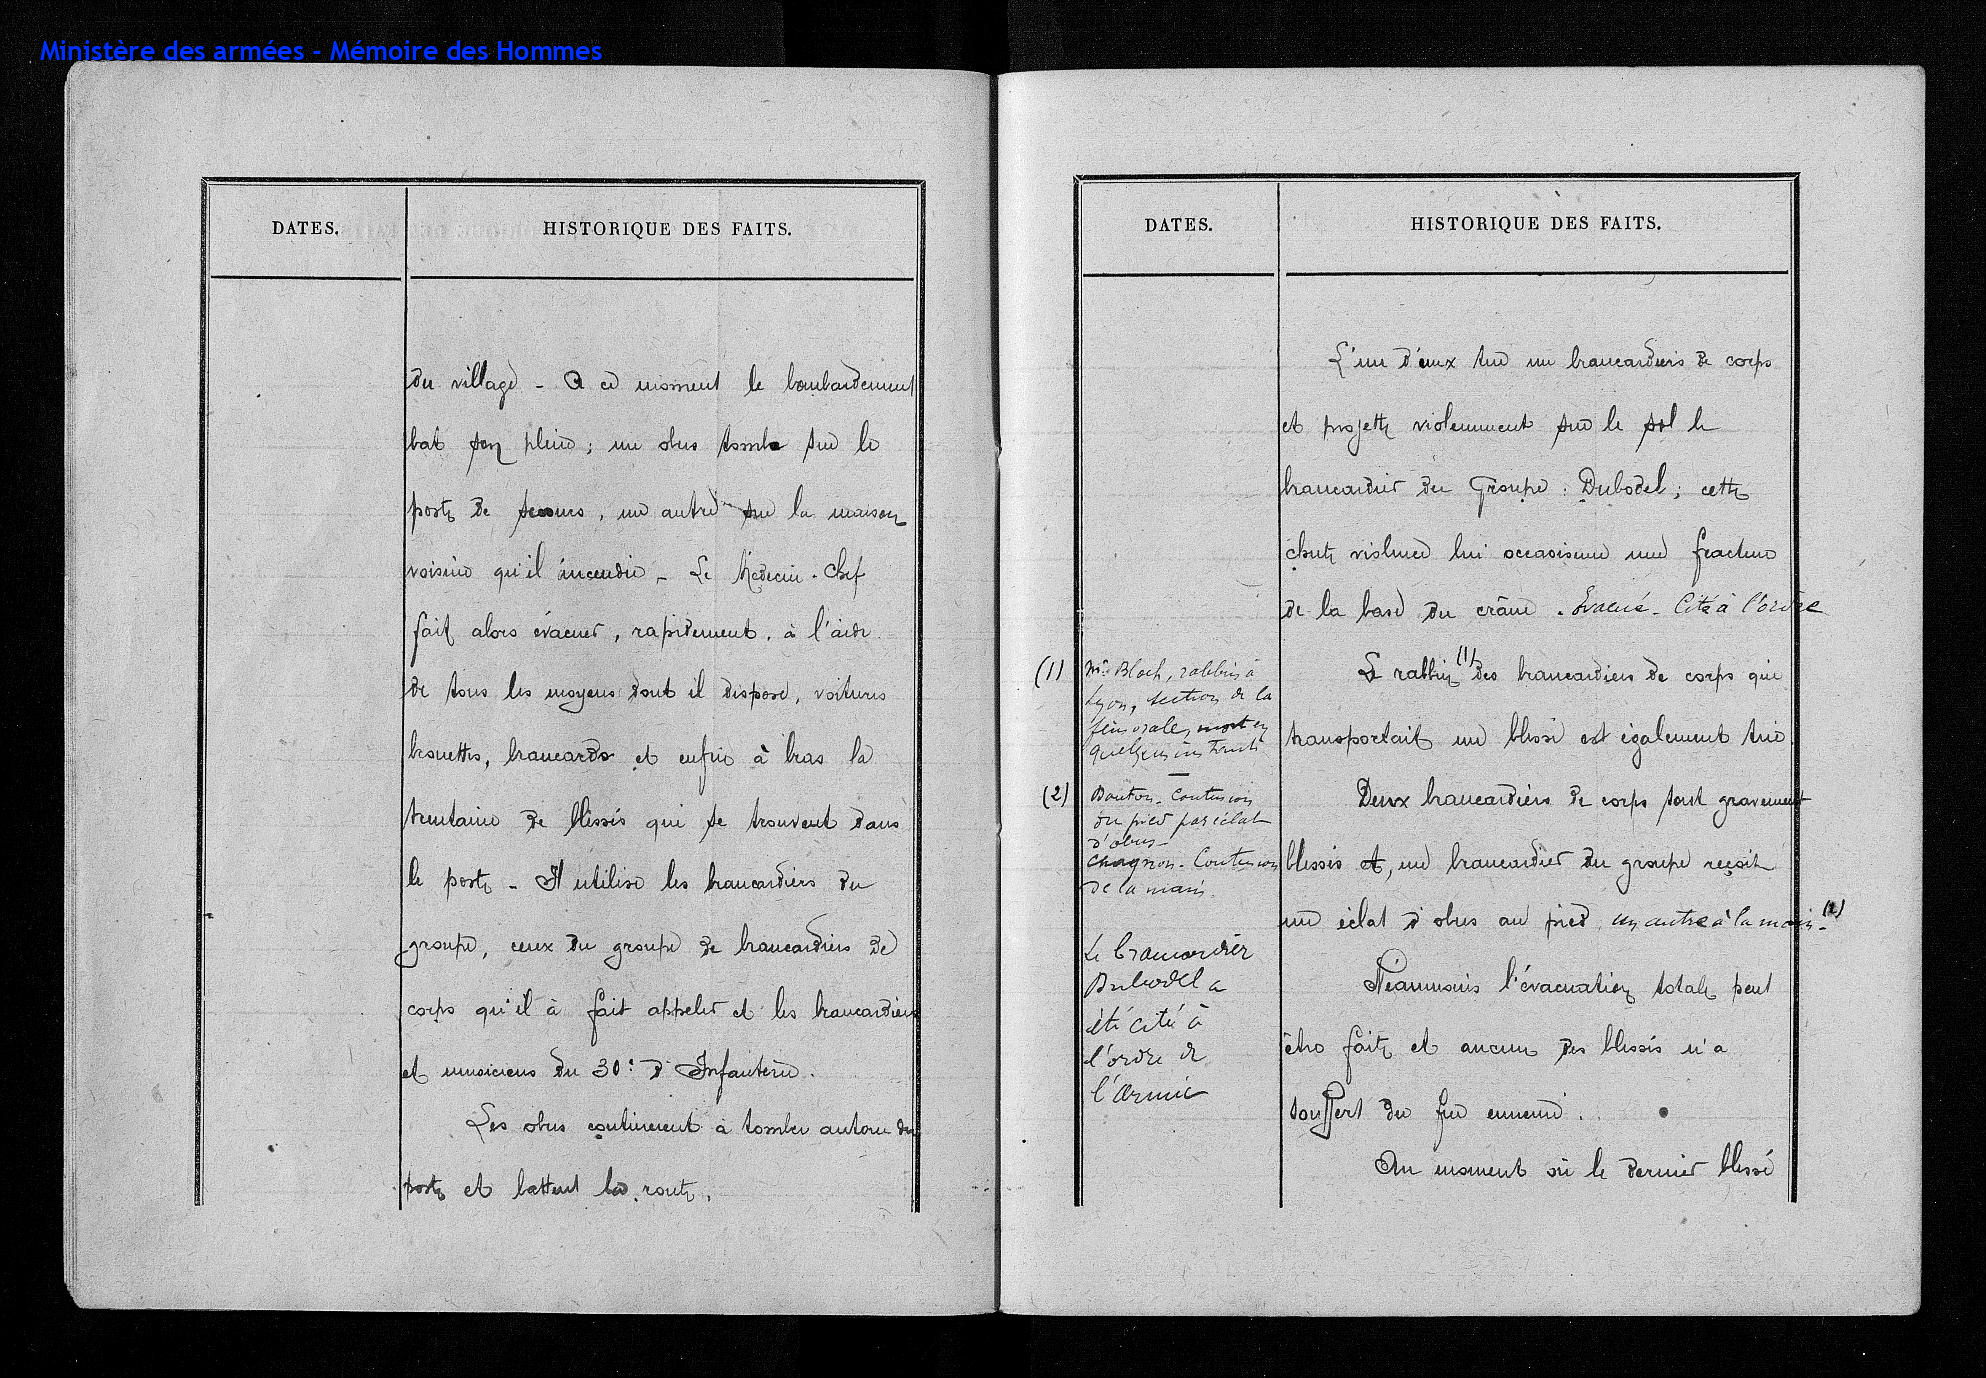 Ministère des armées - Mémoire des Hommes
DATES.
HISTORIQUE DES FAITS.
du village - A ce moment le bombardement
bat son plein ; un obus tombe sur le
poste de secours, un autre sur la maison
voisine qu'il incendie - Le Médecin-Chef
fait alors évacuer, rapidement, à l'aide
de tous les moyens dont il dispose, voitures
brouettes, brancards et enfin à bras la
trentaine de blessés qui se trouvent dans
le poste - Il utilise les brancardiers du
groupe, ceux du groupe de brancardiers de
corps qu'il à fait appeler et les brancardiers
et musiciens du 30e d'Infanterie.
Les obus continuent à tomber autour du
poste et battent la route.
DATES.
HISTORIQUE DES FAITS.
L'un d'eux tue un brancardiers de corps
et projette violemment sur le sol le
brancardier du Groupe : Dubodel ; cette
chute violence lui occasionne une fracture
de la base du crâne. Evacué - Cité à l'ordre
Le rabbin (1) des brancardiers de corps qui
transportait un blessé est également tué.
Deux brancardiers de corps sont gravement
blessés et, un brancardier du groupe reçoit
un éclat d'obus au pied, un autre à la main. (2)
Néanmoins l'évacuation totale peut
être faite et aucun des blessés n'a
souffert du feu ennemi.
Au moment où le dernier blessé
(1) Mr Bloch, rabbin à
Lyon, section de la
fémorale, mort en
quelques instants
(2) Bouton - Contusion
du pied par éclat
d'obus -
Chagnon - Contusion
de la main.
Le brancardier
Dubodel a
été cité à
l'ordre de
l'Armée